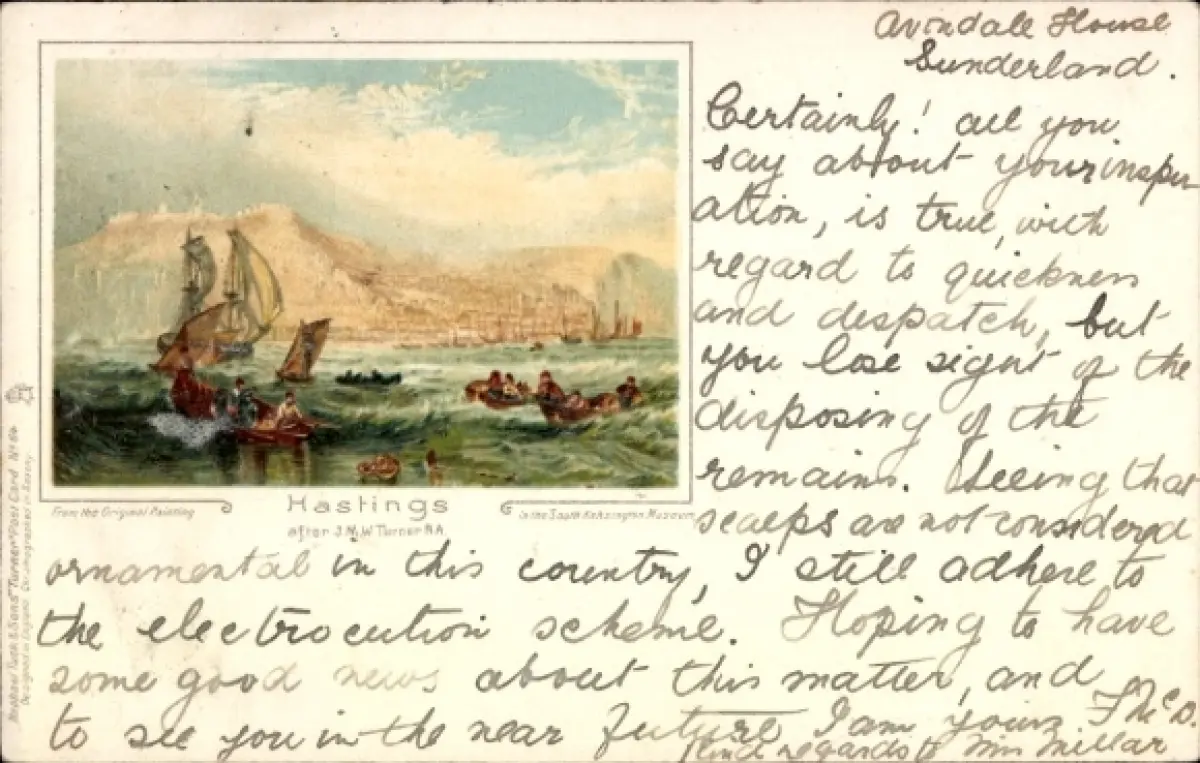 Avondale House
Sunderland.
Certainly! all you
say about your inspir
ation, is true, with
regard to quickness
and despatch, but
you lose sight of the
disposing of the
remains. Seeing that
scalps are not considered
ornamental in this country, I still adhere to
the electrocution scheme. Hoping to have
some good news about this matter, and
to see you in the near future I am yours F McD.
Kind regards to Miss Millar
Hastings
after J.M.W Turner R.A.
From the Original Painting
in the South Kensington Museum
Raphael Tuck & Sons' "Turner" Post Card No 64
Designed in England Chromographed in Saxony